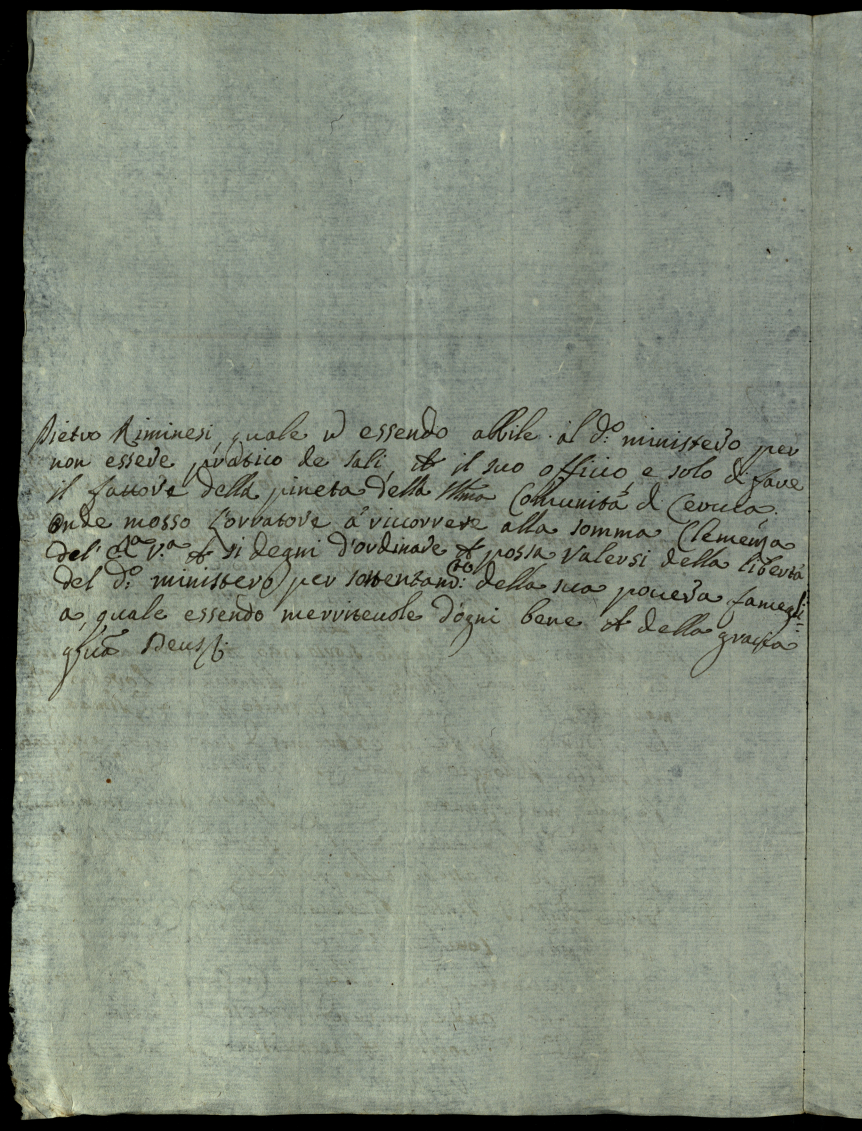 Pietro Riminesi, quale essendo abbile al d.o ministero per
non essere pratico de sali, il suo officio e solo di fare
il fattore della pineta della Ill.ma Comunità di Cervia.
onde mosso l'orratore à ricorrere alla somma Clemenza
del' V.a si degni d'ordinare possa valersi della libertà
del d.o ministero per della sua povera famegli-
a, quale essendo merritevole d'ogni bene della gratia
Deus